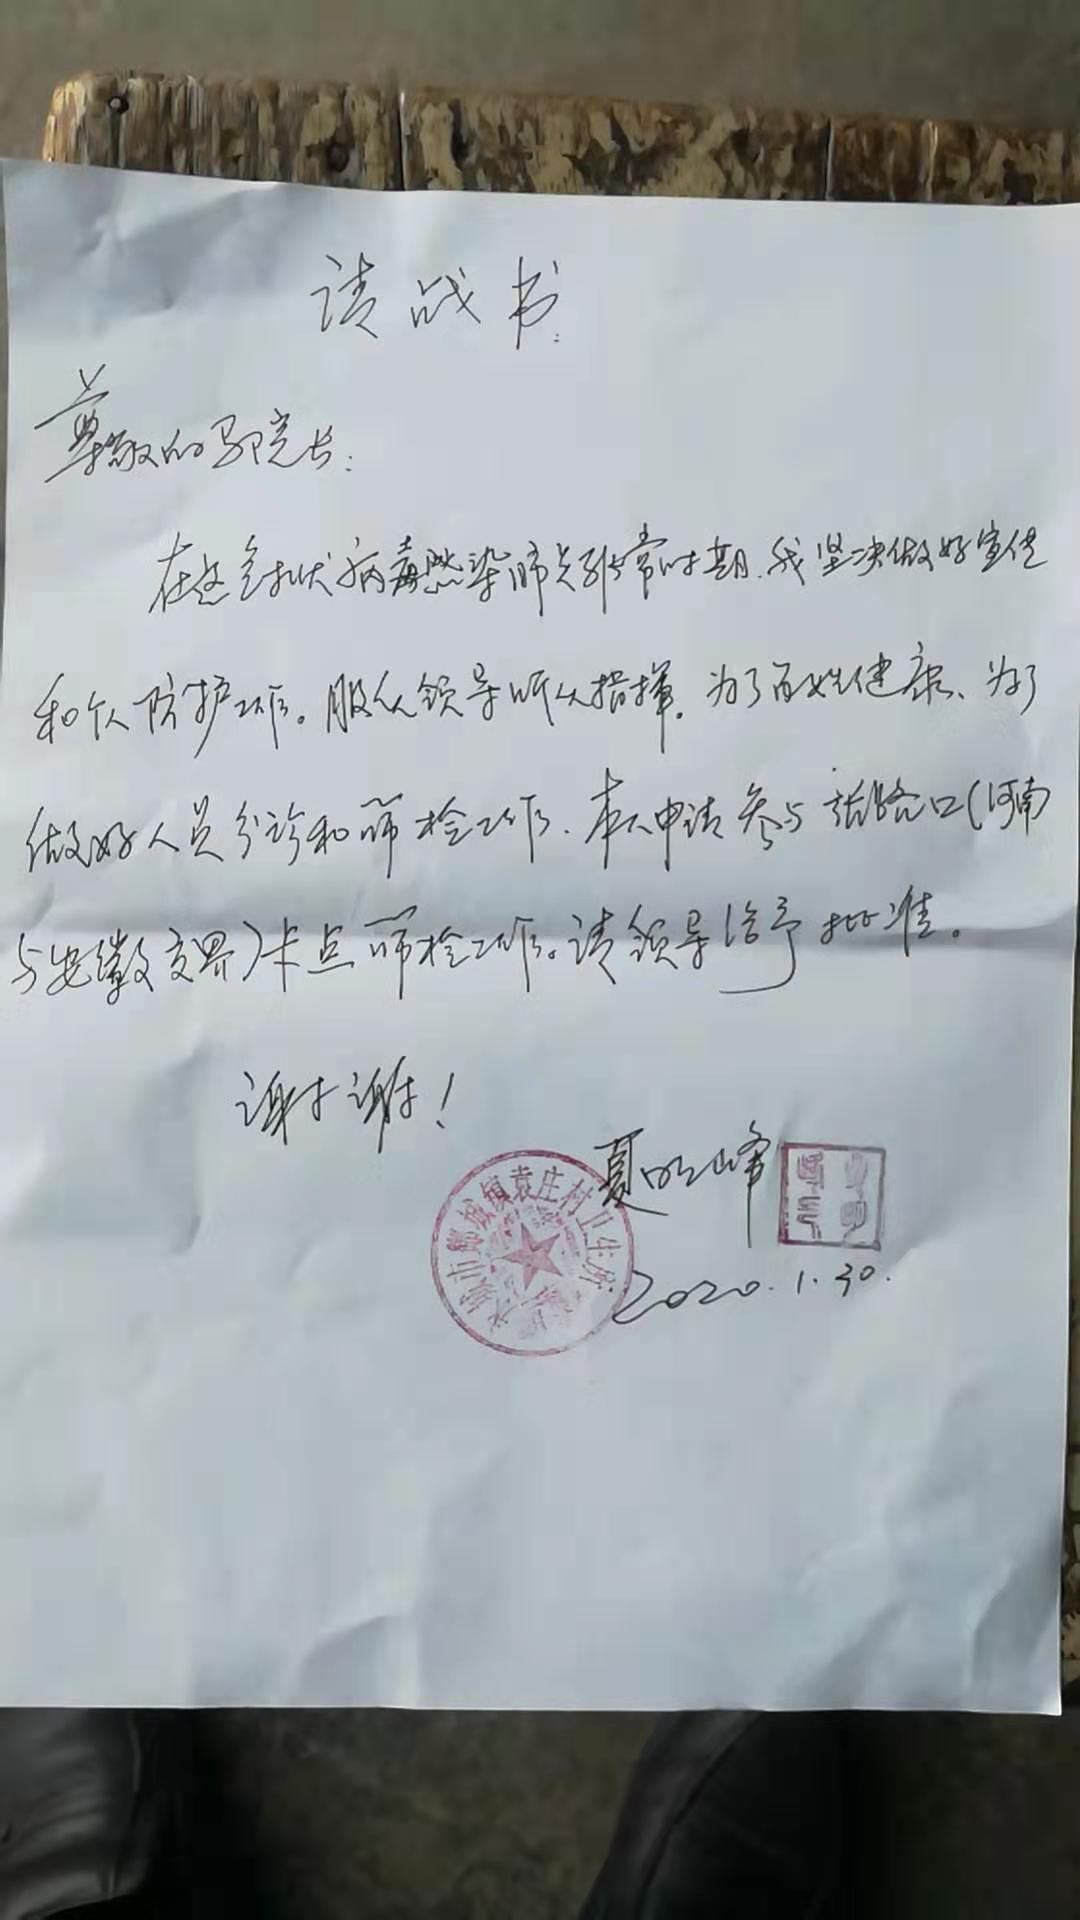 请战书
尊敬的马院长:
在这冠状病毒感染肺炎非常时期.我坚决做好宣传
和个人防护工作。服从领导听从指挥.为了百姓健康、为了
做好人员分诊和筛检工作.本人申请参与路口(河南
与安徽交界)卡点筛检工作。请领导给予批准。
谢谢!
夏明峰
永城市酂城镇袁庄村卫生所
2020.1.30.